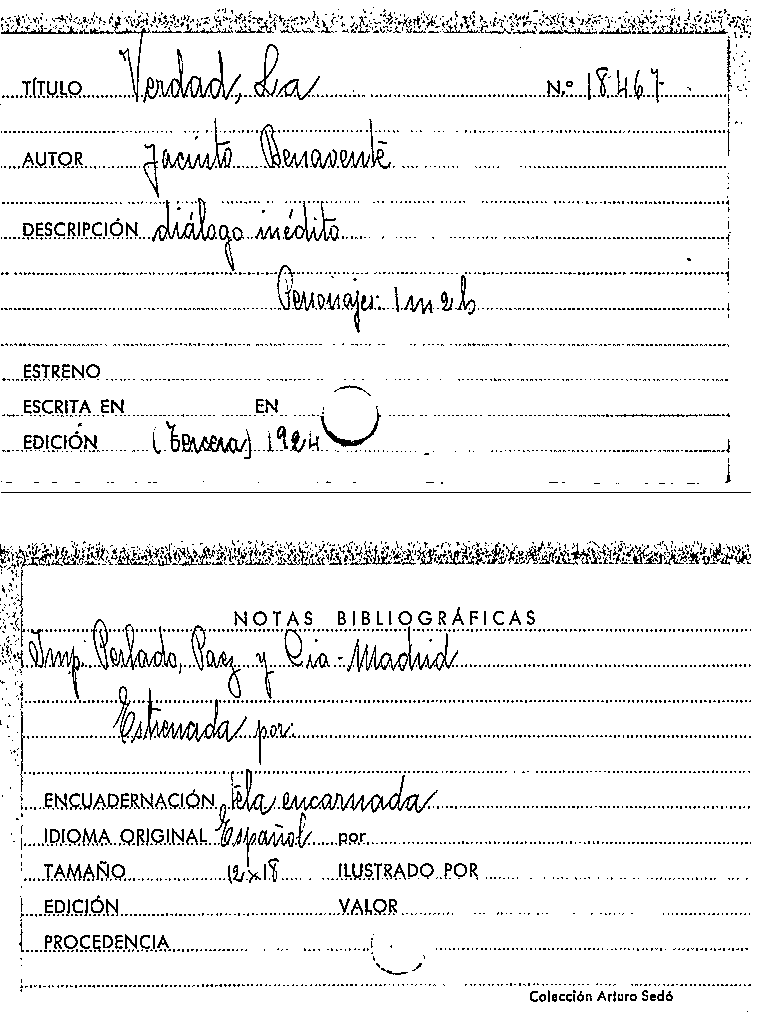 TÍTULO Verdad, La N.º 18467
AUTOR Jacinto Benavente
DESCRIPCIÓN diálogo inédito
Personajes: 1 m 2 h
ESTRENO
ESCRITA EN EN
EDICIÓN (Tercera) 1924
NOTAS BIBLIOGRÁFICAS
Imp. Perlado, Paez y Cia - Madrid
Estrenada por:
ENCUADERNACIÓN tela encarnada
IDIOMA ORIGINAL Español por
TAMAÑO 12x18 ILUSTRADO POR
EDICIÓN VALOR
PROCEDENCIA
Colección Arturo Sedó